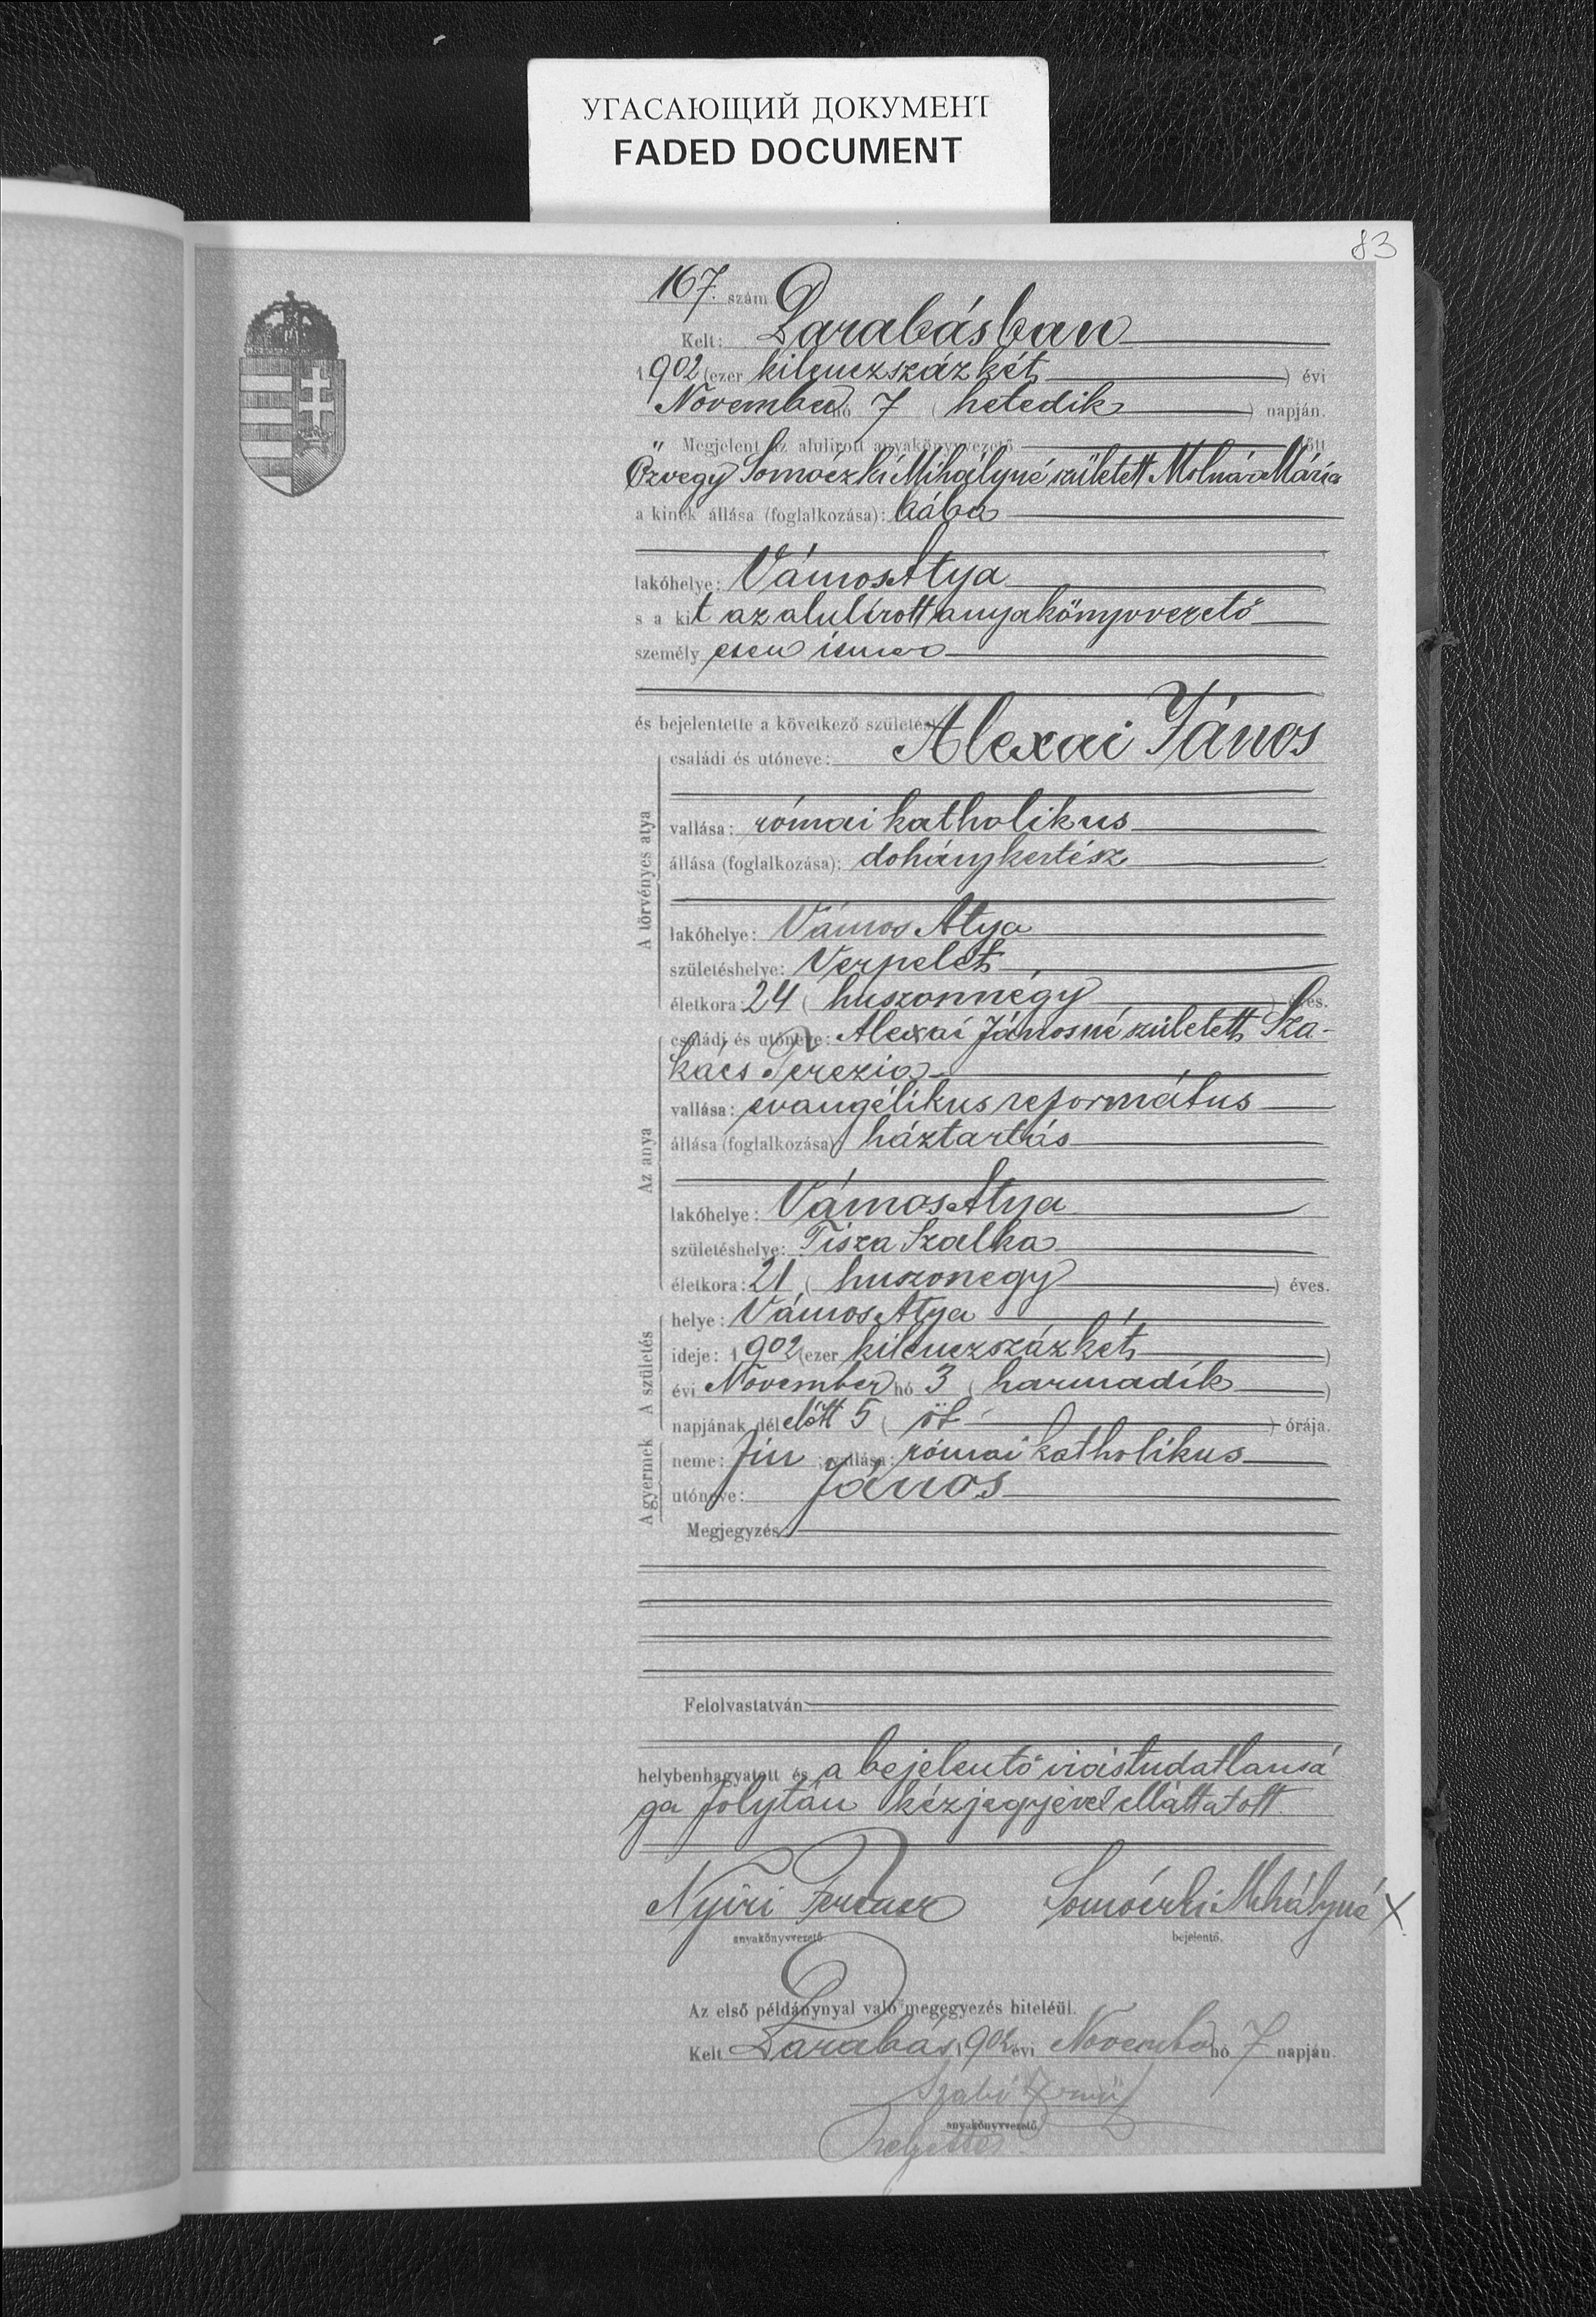 УГАСАЮЩИЙ ДОКУМЕНТ
FADED DOCUMENT
83
167. szám
Kelt: Darabásban
1902 (ezer kilenczszázkét) évi
November hó 7 (hetedik) napján.
Megjelent az alulirott anyakönyvvezető előtt
Özvegy Somóczki Mihályné született Molnár Mária
a kinek állása (foglalkozása): bába
lakóhelye: Vámos Atya
s a kit az alulírott anyakönyvvezető
személyesen ismer
és bejelentette a következő születést:
A törvényes atya
családi és utóneve: Alexai János
vallása: római katholikus
állása (foglalkozása): dohánykertész
lakóhelye: Vámos Atya
születéshelye: Verpelét
életkora: 24 (huszonnégy) éves.
Az anya
családi és utóneve: Alexai Jánosné született Sza-
kács Terezia
vallása: evangélikus református
állása (foglalkozása): háztartás
lakóhelye: Vámos Atya
születéshelye: Tisza Szalka
életkora: 21 (huszonegy) éves.
A születés
helye: Vámos Atya
ideje: 1902 (ezer kilenczszázkét)
évi November hó 3 (harmadik)
napjának délelőtt 5 (öt) órája.
A gyermek
neme: fiu ; vallása: római katholikus
utóneve: János
Megjegyzés:
Felolvastatván
helybenhagyatott és a bejelentő irástudatlansá
ga folytán kézjegyével elláttatott
Nyíri Ferencz Somóczki Mihályné X
anyakönyvvezető. bejelentő.
Az első példánynyal való megegyezés hiteléül.
Kelt Darabás 1902 évi November hó 7 napján.
Szabó
anyakönyvvezető
helyettes